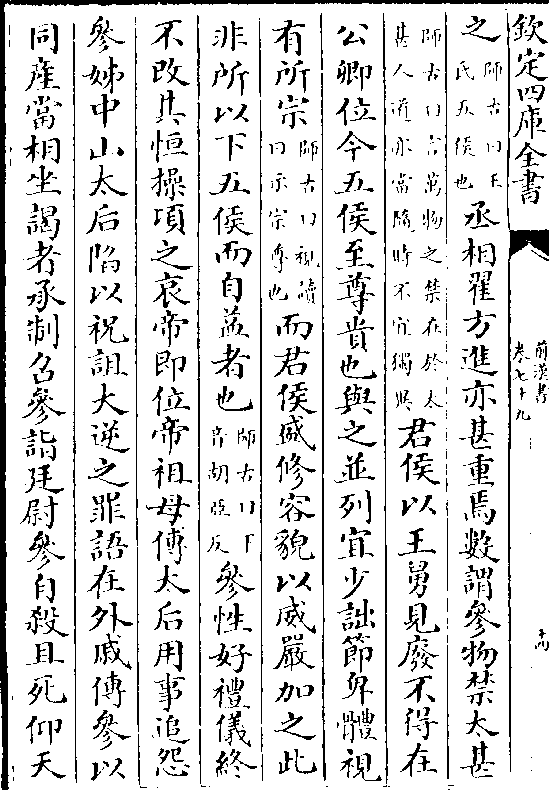 欽定四庫全書
前漢書
卷七十九
十四
之師古曰王氏五侯也丞相翟方進亦甚重焉數謂參物禁太甚
師古曰言萬物之禁在於太甚人道亦當隨時不宜獨異君侯以王舅見廢不得在
公卿位今五侯至尊貴也與之並列宜少詘節卑體視
有所宗師古曰視讀曰示宗尊也而君侯盛修容貌以威嚴加之此
非所以下五侯而自益者也師古曰下音胡亞反參性好禮儀終
不改其恒操項之哀帝即位帝祖母傅太后用事追怨
參姊中山太后陷以祝詛大逆之罪語在外戚傳參以
同產當相坐謁者承制召參詣廷尉參自殺且死仰天